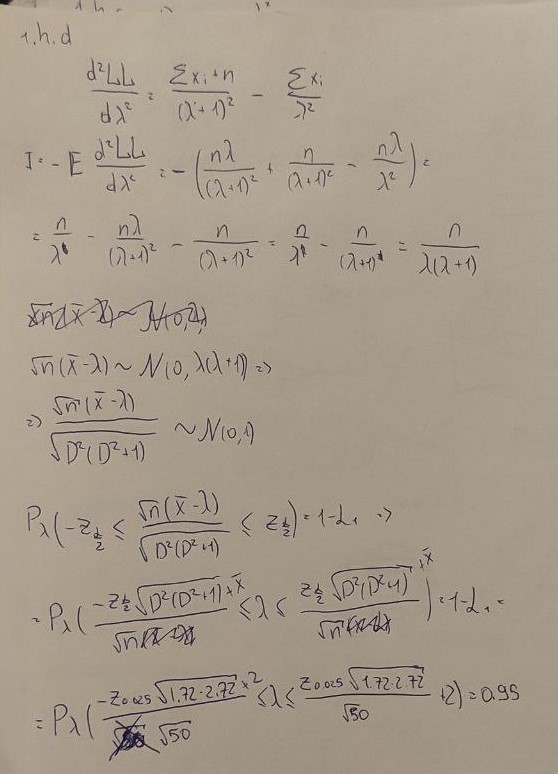 1.h.d
d²LL/dλ² = (Σxi+n)/(λ+1)² - Σxi/λ²
I = -E d²LL/dλ² = -(nλ/(λ+1)² + n/(λ+1)² - nλ/λ²) =
= n/λ - nλ/(λ+1)² - n/(λ+1)² = n/λ - n/(λ+1) = n/(λ(λ+1))
√n(x̄-λ) ~ N(0, λ(λ+1)) =>
=> √n(x̄-λ)/√(D²(D²+1)) ~ N(0,1)
Pλ(-z_{α/2} ≤ √n(x̄-λ)/√(D²(D²+1)) ≤ z_{α/2}) = 1-α, =>
= Pλ((-z_{α/2}√(D²(D²+1)))/√n + x̄ ≤ λ ≤ (z_{α/2}√(D²(D²+1)))/√n + x̄) = 1-α, =
= Pλ((-z0.025√(1.72·2.72))/√50 + 2 ≤ λ ≤ (z0.025√(1.72·2.72))/√50 + 2) = 0.95